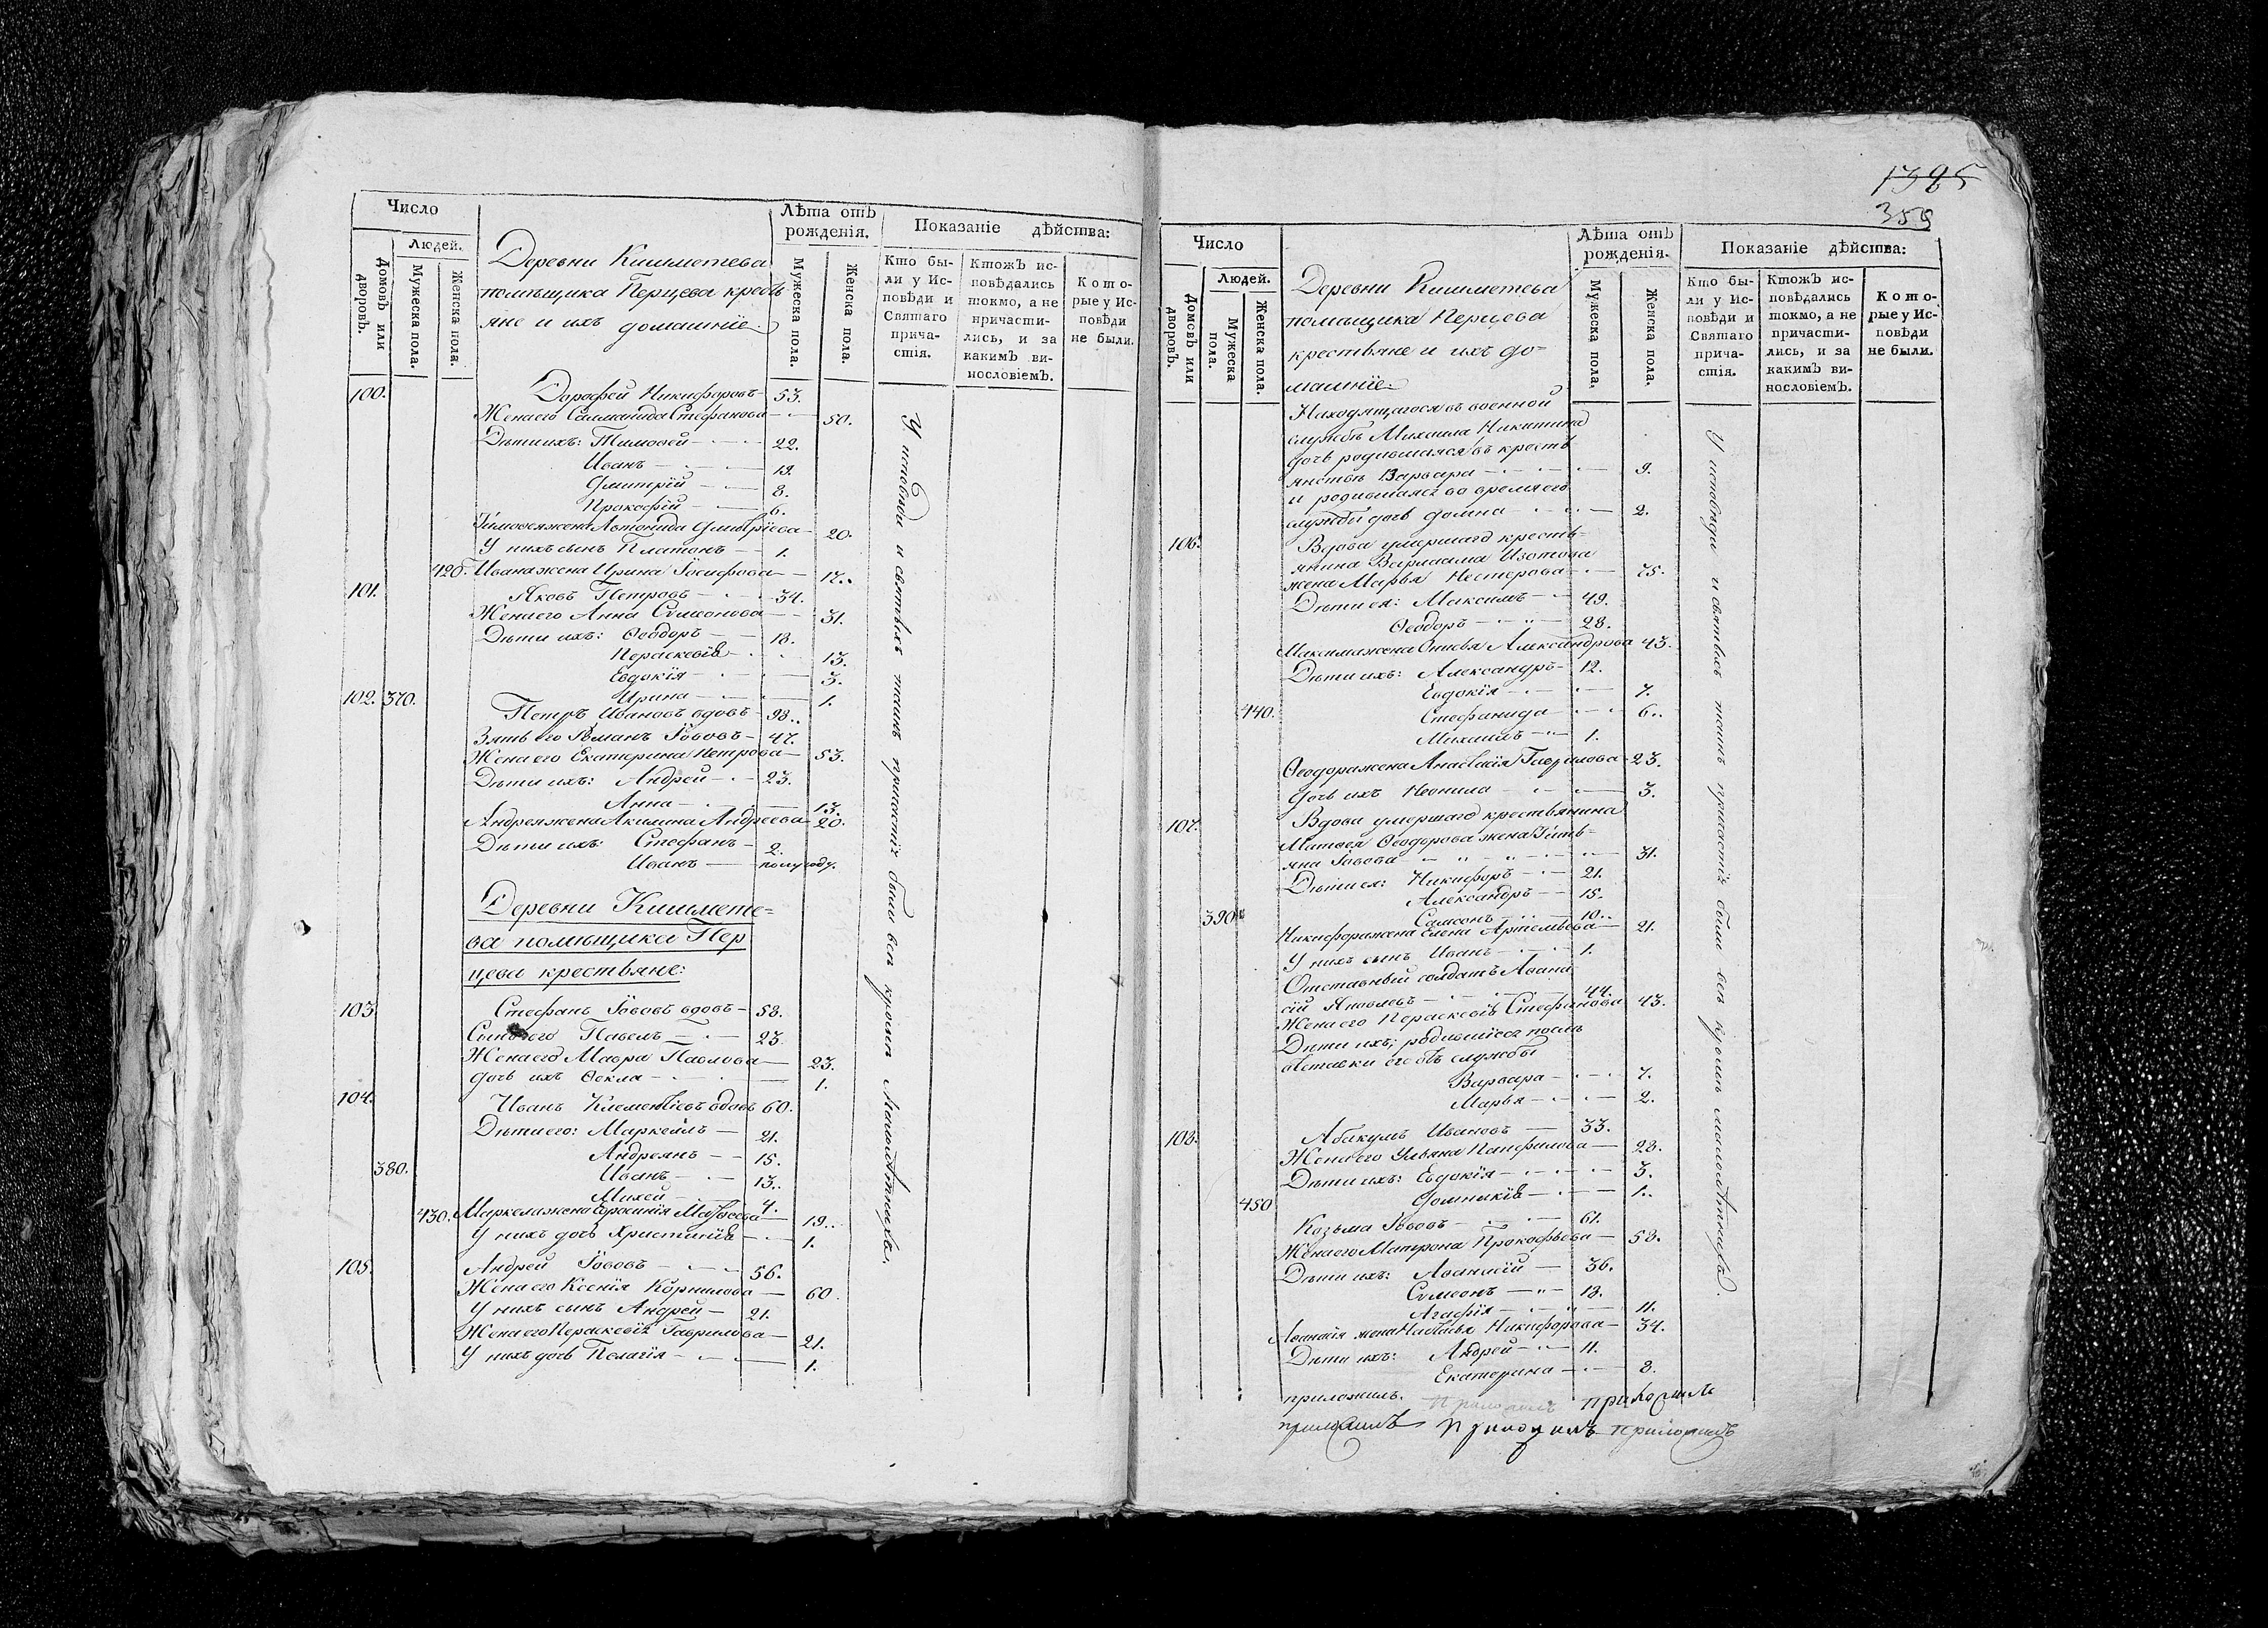 Число
Людей.
Домовъ или дворовъ.
Мужеска пола.
Женска пола.
Деревни Кишметева
помѣщика Перцева кресть
яне и ихъ домашнiе.
Лѣта отъ рожденiя.
Мужеска пола.
Женска пола.
Показанiе дѣйства:
Кто были у Исповѣди и Святаго причастiя.
Ктожъ исповѣдались токмо, а не причастились, и за какимъ винословiемъ.
Которые у Исповѣди не были.
100. Дорофей Никифоровъ 53.
Жена его Саломанида Стефанова 50.
Дѣти ихъ: Тимофей 22.
Иванъ 19.
Дмитрiй 8.
Прокофiй 6.
Тимофея жена Антонида Дмитрiева 20.
У нихъ сынъ Платонъ 1.
420. Ивана жена Ирина Iосифова 17.
101. Яковъ Петровъ 34.
Жена его Анна Симеонова 31.
Дѣти ихъ: Ѳеодоръ 18.
Параскевiя 13.
Евдокiя 3.
Ирина 1.
102. 370. Петръ Ивановъ вдовъ 98.
Зять его Романъ Iововъ 47.
Жена его Екатерина Петрова 53.
Дѣти ихъ: Андрей 23.
Анна 13.
Андрея жена Акилина Андреева 20.
Дѣти ихъ: Стефанъ 2.
Иванъ полугоду.
Деревни Кишмете=
ва помѣщика Пер
цева крестьяне:
103. Стефанъ Iововъ вдовъ 58.
Сынъ его Павелъ 23.
Жена его Мавра Павлова 23.
Дочь ихъ Ѳекла 1.
104. Иванъ Клементiевъ вдовъ 60.
Дѣти его: Маркеллъ 21.
Андреянъ 15.
380. Иванъ 13.
Михей 4.
430. Маркела жена Ефросинiя Матвеева 19.
У нихъ дочь Христинiя 1.
105. Андрей Iововъ 56.
Жена его Ксенiя Корнилова 60.
У нихъ сынъ Андрей 21.
Жена его Параскевiя Гаврилова 21.
У нихъ дочь Пелагiя 1.
У исповѣди и святыхъ таинъ причастiя были всѣ кромѣ малолѣтнихъ.
1385
359
Число
Людей.
Домовъ или дворовъ.
Мужеска пола.
Женска пола.
Деревни Кишметева
помѣщика Перцева
крестьяне и ихъ до=
машнiе.
Лѣта отъ рожденiя.
Мужеска пола.
Женска пола.
Показанiе дѣйства:
Кто были у Исповѣди и Святаго причастiя.
Ктожъ исповѣдались токмо, а не причастились, и за какимъ винословiемъ.
Которые у Исповѣди не были.
Находящагося въ военной
службѣ Михаила Никитина
дочь родившаяся въ кресть
янствѣ Варвара 9.
и родившаяся во время его
службы дочь Домна 2.
106. Вдова умершаго кресть=
янина Варлаама Изотова
жена Марья Нестерова 75.
Дѣти ея: Максимъ 49.
Ѳеодоръ 28.
Максима жена Александрова 43.
Дѣти ихъ: Александръ 12.
Евдокiя 7.
440. Стефанида 6.
Михаилъ 1.
Ѳеодора жена Анастасiя Гаврилова 23.
дочь ихъ Неонила 3.
107. Вдова умершаго крестьянина
Матвея Ѳеодорова жена Улить=
яна Iовова 31.
Дѣти ея: Никифоръ 21.
Александръ 15.
390. Самсонъ 10.
Никифора жена Елена Артемьева 21.
У нихъ сынъ Иванъ 1.
Отставный солдатъ Аѳана
сiй Яковлевъ 44.
Жена его Параскевiя Стефанова 43.
Дѣти ихъ; родившiеся послѣ
отставки его отъ службы
Варвара 7.
Марья 2.
108. Абакумъ Ивановъ 33.
Жена его Ульяна Панфилова 28.
Дѣти ихъ: Евдокiя 3.
450. Домникiя 1.
Козьма Iововъ 61.
Жена его Матрона Прокофьева 58.
Дѣти ихъ: Аѳанасiй 36.
Симеонъ 18.
Агафiя 11.
Аѳанасiя жена Наталья Никифорова 34.
Дѣти ихъ: Андрей 11.
Екатерина 8.
У исповѣди и святыхъ таинъ причастiя были всѣ кромѣ малолѣтнихъ.
приложилъ.